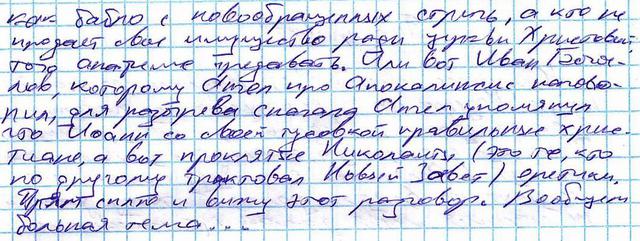 как бабло с новообращенных стричь, а кто не
продает свое имущество ради церкви Христовой
того анафеме предавать. Или вот Иван Богос-
лов, которому Ангел про Апокалипсис напово-
рил, для разогрева сначала Ангел упомянул
что Иоанн со своей тусовкой правильные хрис-
тиане, а вот проклятые Николаиты, (это те, кто
по другому трактовал Новый Завет) еретики.
Прям сплю и вижу этот разговор. Вообщем
больная тема...